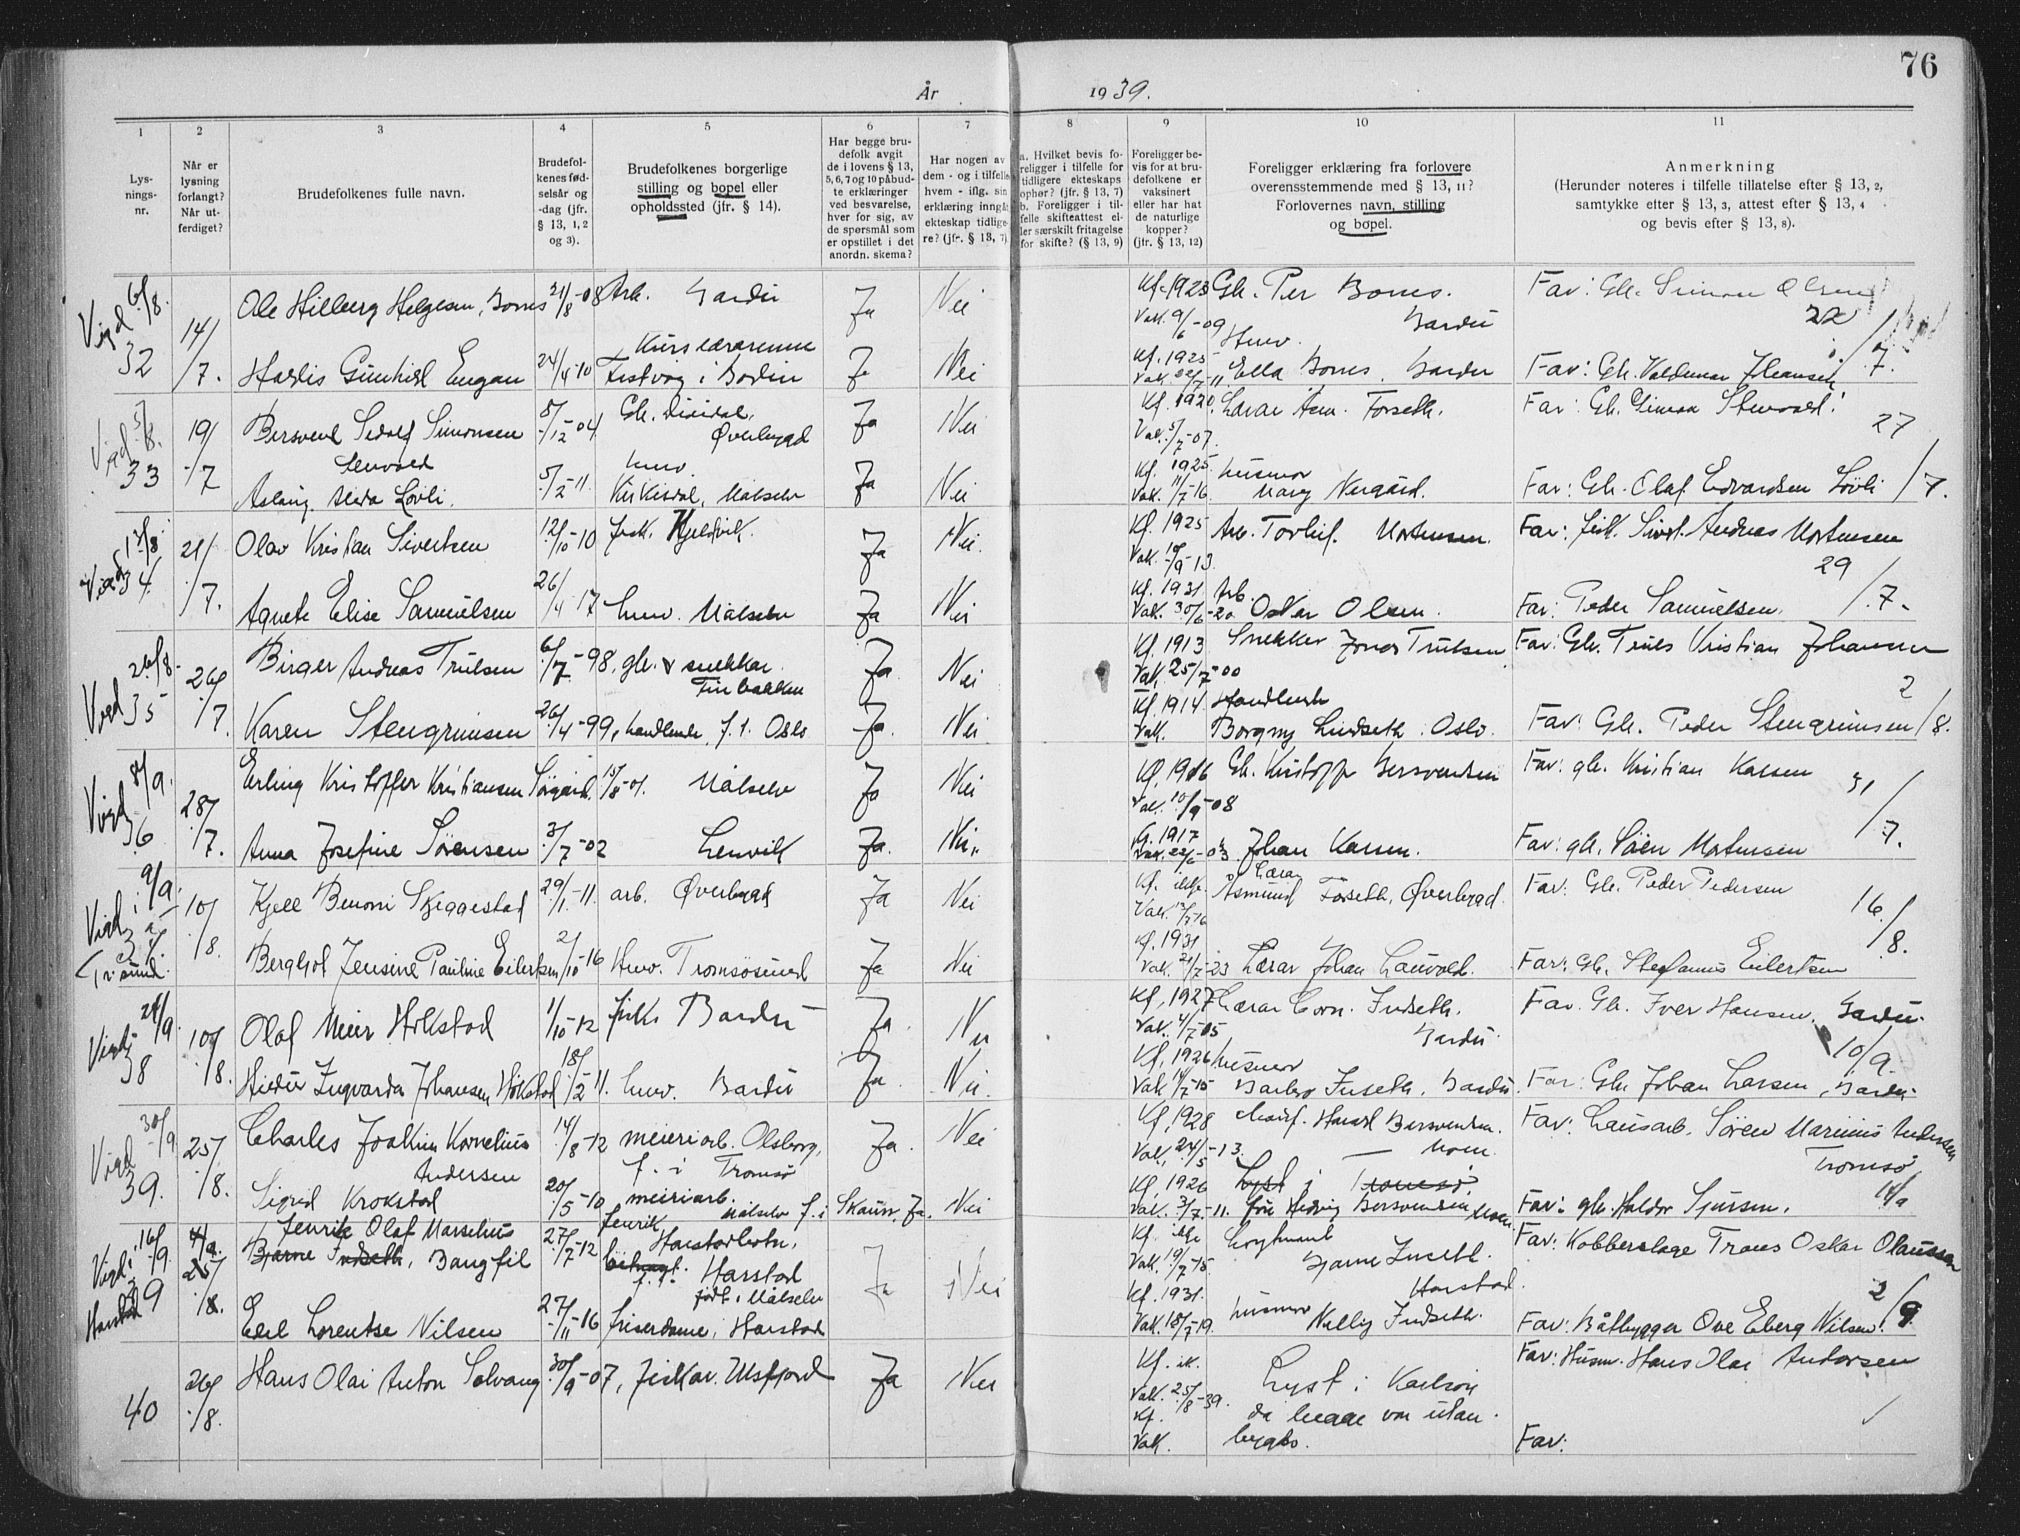 76
År 1939.
1
2
3
4
5
6
7
8
9
10
11
Lys-
nings-
nr.
Når er
lysning
forlangt?
Når ut-
ferdiget?
Brudefolkenes fulle navn.
Brudefol-
kenes fød-
selsår og
-dag (jfr.
§ 13, 1, 2
og 3).
Brudefolkenes borgerlige
stilling og bopel eller
opholdssted (jfr. § 14).
Har begge bru-
defolk avgit
de i lovens § 13,
5, 6, 7 og 10 påbud-
te erklæringer
ved besvarelse,
hver for sig, av
de spørsmål som
er opstillet i det
anordn. skema?
Har nogen av
dem - og i tilfelle
hvem - iflg. sin
erklæring inngåt
ekteskap tidlige-
re? (jfr. § 13, 7)
a. Hvilket bevis fo-
religger i tilfelle for
tidligere ekteskaps
ophør? (jfr. § 13, 7)
b. Foreligger i til-
felle skifteattest el-
ler særskilt fritagelse
for skifte? (§ 13, 9)
Foreligger be-
vis for at bru-
defolkene er
vaksinert
eller har hat
de naturlige
kopper?
(jfr. § 13, 12)
Foreligger erklæring fra forlovere
overensstemmende med § 13, 11?
Forlovernes navn, stilling
og bopel.
Anmerkning
(Herunder noteres i tilfelle tillatelse efter § 13, 2,
samtykke efter § 13, 3, attest efter § 13, 4
og bevis efter § 13, 8).
Vigd 6/8. 32 14/7. Ole Hilberg Helgesen, Bones 21/8-08 Arb. Bardu Ja Nei Kf. 1923 Gb. Per Bones. Far: Gb. Simon Olsen
Vak. 9/6-09 Bardu 22/7.
Husv.
Hardis Gunhild Engan 24/4-10 Kurslærarinne Festvog i Bodin Ja Nei Kf. 1925 Ella Bones. Bardu Far: Gb. Valdemar Johansen
Vak. 22/7-11
Vigd 5/8. 33 19/7 Bersvend Sedolf Simonsen 5/12-04 Gb. Dividal, Øverbygd Ja Nei Kf. 1920. Lærar Asm. Forseth. Far: Gb. Simon
Vak. 5/7-07. 27/7.
Aslaug Alida Løvli. 5/2-11. husv. Kirkesdal, Målselv Ja Nei Kf. 1925 husmor Mary Nergård. Far: Gb. Olaf Edvardsen Løvli
Vak. 11/7-16
Vigd 13/8. 34. 21/7. Olav Kristian Sivertsen 12/10-10 fisk. Kjeldvik. Ja Nei. Kf. 1925 Arb. Torleif Mortensen. Far: fisk. Sivert Andreas Mortensen
Vak. 10/9-13. 29/7.
Agnete Elise Samuelsen 26/4-17 husv. Målselv Ja Nei Kf. 1931 Arb. Oskar Olsen. Far: Peder Samuelsen.
Vak. 30/6-20
Vigd 26/8. 35 26/7. Birger Andreas Trulsen 6/7-98, gb. & snekkar. Finbakken Ja Nei Kf. 1913 Snekker Jonas Trulsen Far: Gb. Truls Kristian Johansen
Vak. 25/7-00 2/8.
Karen Stengrimsen 26/4-99, handlende f. i. Oslo Ja. Nei Kf. 1914 Handlende Borgny Lindseth. Oslo. Far: Gb. Peder Stengrimsen
Vak.
Vigd 8/9. 36 28/7. Erling Kristoffer Kristiansen Sørgård. 15/8-01. Målselv Ja Nei Kf. 1916 Gb. Kristoffer Bersvendsen Far: gb. Kristian Karsen
Vak. 10/9-08 31/7.
Anna Josefine Sørensen 3/7-02 Lenvik Ja. Nei. Kf. 1917 Johan Karsen. Far: gb. Søren Mortensen
Vigd i 9/9. 37 Tr.sund. 10/8. Kjell Benoni Skjeggestad 29/1-11. arb. Øverbygd Ja Nei Kf. ikkje. Lærar Åsmund Forseth, Øverbygd. Far: Gb. Peder Pedersen
16/8.
Bergljot Jensine Pauline Eilertsen 2/10-16 Husv. Tromsøsund Ja Nei Kf. 1931. Lærar Johan Lauvold. Far: Gb. Stefanus Eilertsen
Vak. 21/7-23
Vigd 24/9. 38 10/8. Olaf Meier Hokstad 1/10-12 fisk. Bardu Ja Nei Kf. 1927 Lærar Corn. Indseth. Bardu Far. Gb. Iver Hansen. Bardu.
Vak. 4/7-05 10/9.
Ingvarda Johansen Hokstad 18/2-11. husv. Bardu Ja. Nei. Kf. 1926 husmor Barbro Inseth. Bardu. Far: Gb. Johan Larsen, Bardu.
Vak. 14/7-15
Vigd 30/9 39. 25/8. Charles Joakim Kornelius Andersen 14/8-12 meieriarb. Olsborg, f. i Tromsø Ja. Nei Kf. 1928 Harald Bersvendsen. Moen. Far: Lausarb. Søren Marinius Andersen
Vak. 24/5-13. Lyst i Tromsø. Tromsø
Sigrid Krokstad 20/5-10 meieriarb. Målselv f. i Skaun, Ja. Nei Kf. 1926 fru Hedvig Bersvendsen Moen. Far: gb. Haldor Sjursen. 14/9
Vak. 3/7-11.
Vigd i 16/9. Harstad 39 25/8. Bjarne Indseth, Henrik Olaf Marselius Bangfil 27/7-12 Harstadbotn, Harstad født i Målselv Ja Nei Kf. ikkje Løytnant Bjarne Inseth. Harstad. Far: Kobberslage Trons Oskar Olaussen
Vak. 19/7-15. 2/9.
Edel Lorentse Nilsen 27/11-16 friserdame, Harstad Kf. 1931. husmor Nelly Indseth. Far: Båtbygger Ove Eberg Nilsen.
Vak. 18/7-19.
40 26/8. Hans Olai Anton Solvang 30/9-07, fiskar. Ullsfjord Ja Nei Kf. ik. Lyst i Karlsøy Far: Husm. Hans Olai Andersen
Vak. 25/8-39. da begge var utan-
Kf. bygds.
Vak. Far: